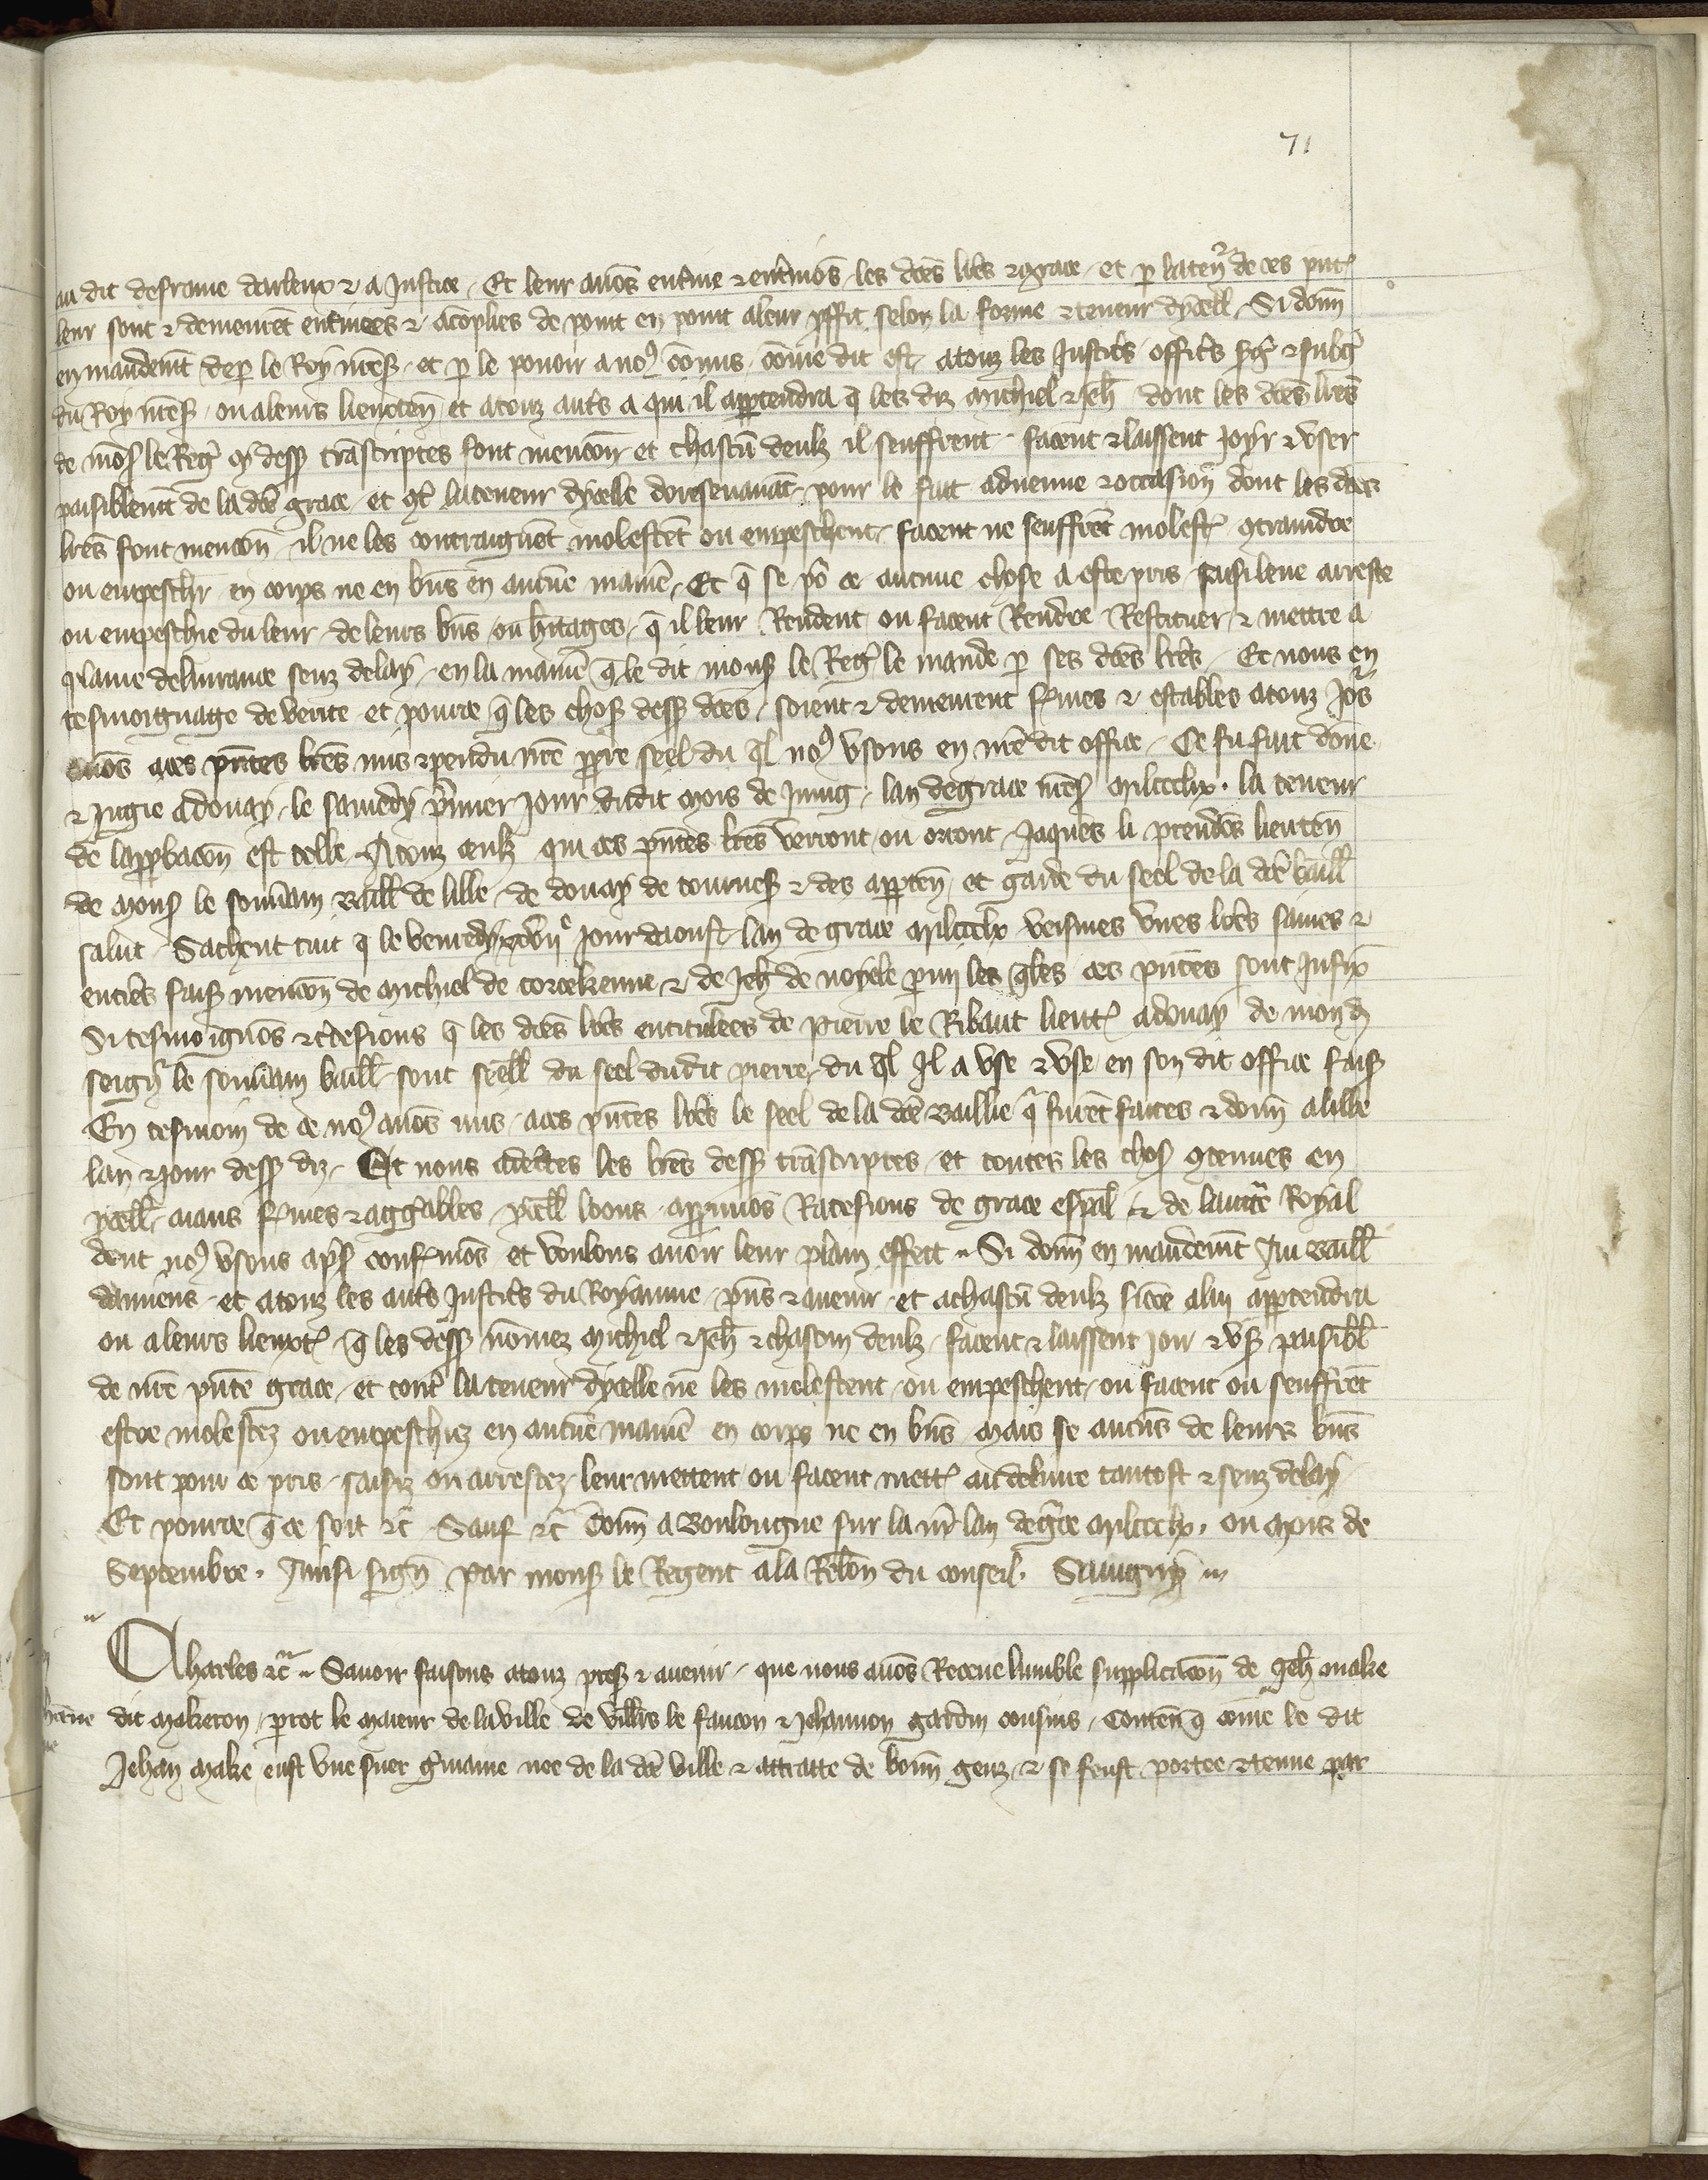 71
au dit desrame darleux ⁊ a Justice Et leur auōs enťine ⁊ enťinōs les dc̄es lr̄es ⁊ grace et p laten̄ de ces pn̄t
leur sont ⁊ demeurēt enťinees ⁊ acōplies de point en point aleur pffit selon la forme ⁊ teneur dycell̄ Si donn̄
en mandemt̄ dep le Roy nr̄es et p le pouoir a noꝰ cōmis cōme dit est atouz les Justic̄s offic̄s ⁊ subḡ
du Roy nr̄es ou aleurs lieuxten̄ et atouz aut̄s a qui il appartendra q̄ les diz Michiel ⁊ Jeh̄ dont les dc̄es lr̄es
de mōs le Reḡ cy dess trāscriptes font mencon̄ et chascū deulz il seuffrent facent ⁊ laissent Joyr ⁊ vser
paisiblemt̄ de la dc̄e grace et 9t̄ lateneur dycelle doresenauāt pour le fait aduenue ⁊ occasion̄ dont les dc̄es
lr̄es font mencōn il ne les contraignēt molestēt ou empeschent facent ne seuffrēt molest 9traindre
ou empeschr en corps ne en bn̄s en aucūe maniē Et q̄ se po᷑ ce aucune chose a este pris saisi leue arreste
ou empeschie du leur de leurs bn̄s ou hitages q̄ il leur Rendent ou facent Rendre Restituer ⁊ mettre a
plaine deliurance senz delay en la maniē q̄ le dit mons le Reḡ le mande p ses dc̄es lr̄es Et nous en
tesmoignage de verite et pource q̄ les chos dess dc̄es soient ⁊ demeurent fmes ⁊ estables atouz Jo᷑s
auōs aces pn̄tes lr̄es mis ⁊ pendu nr̄e ppre seel du ql̄ noꝰ vsons en nr̄e dit office Ce fu fait dōne
⁊ Jugie adouay le samedy p̄mier Jour dudit mois de Juing lan degrace mil ccc lx. la teneur
de lappbacōn est telle Atouz ceulz qui ces pn̄tes lr̄es verront ou orront Jaques li prendōs lieuten̄
de mons le souu̾ain Baill̄ de lille de douay de tournes ⁊ des apparten̄ et garde du seel de la dc̄e baill̄
salut Sachent tuit q̄ le venredy xxviijᵉ Jour daoust lan de grace mil ccc lx veismes vnes lr̄es saines ⁊
entieres fais mencōn de michiel de corcekenne ⁊ de Jeh̄ de noyele pmi les q̄les ces pn̄tes sont Jnfix̄
Si tesmoignōs ⁊ ctesions q̄ les dc̄es lr̄es entitulees de Pierre le Ribaut lieut̄ adouay de mond
seign᷑ le souu̾ain baill̄ sont seell̄ du seel dudit pierre du ql̄ Jl a vse ⁊ vse en son dit office fais
En tesmoin de ce noꝰ auōs mis aces pn̄tes lr̄es le seel de la dc̄e Baillie q̄ furēt faites ⁊ donn̄ alille
lan ⁊ Jour dess diz Et nous les lr̄es dess trāscriptes et toutes les chos 9tenues en
ycell̄ aians fmes ⁊ aggables ycell̄ loons appruuōs Ratefions de grace espāl ⁊ de lauct̄e Royal
dont noꝰ vsons aps confmōs et voulons auoir leur plain effect Si donn̄ en mandemt̄ Au Baill̄
damiens et atouz les aut̄s Justic̄s du Royaume pn̄s ⁊ auenir et achascū deulz sicōe alui appartendra
ou aleurs lieuxt̄ q̄ les dess nōmez Michiel ⁊ Jeh̄ ⁊ chascun deulz facent ⁊ laissent Joir ⁊ vs paisibl̄
de nr̄e pn̄te grace et cont̄ la teneur dycelle ne les molestent ou empeschent ou facent ou seuffrēt
estre molestez ou empeschiez en aucūe maniē en corps ne en bn̄s mais se aucūs de leurs bn̄s
sont pour ce pris saisiz ou arrestez leur mettent ou facent mett̄ au deliure tantost ⁊ senz delay
Et pource q̄ ce soit ⁊c̄ Sauf ⁊c̄ Donn̄ a Boulongne sur la m̄ lan degrāce mil ccc lx. ou mois de
Septembre. Ainsi sign̄ Par mons le Regent ala Relōn du conseil. Sauigny
Charles ⁊c̄ Sauoir faisons atouz pres ⁊ auenir que nous auōs Receue lumble supplicacōn de Jeh̄ make
dit makeron prot le maieur de laville de villrs le faucon ⁊ Jehannon gardin cousins Conten̄ q̄ cōme le dit
Jehan make eust vne suer gmaine nee de la dc̄e ville ⁊ attraite de bonn̄ genz ⁊ se feust portee ⁊ tenue par